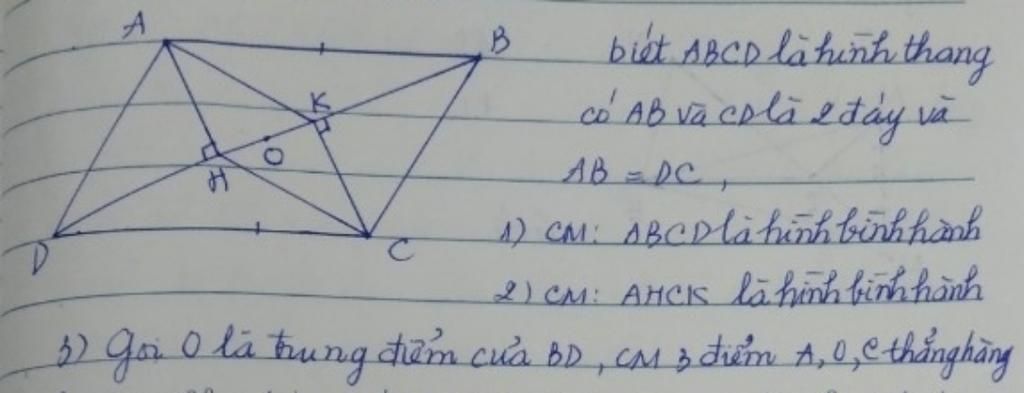 A
B
K
O
H
D
C
biết ABCD là hình thang
có AB và CD là 2 đáy và
AB = DC,
1) CM: ABCD là hình bình hành
2) CM: AHCK là hình bình hành
3) Gọi O là trung điểm của BD, CM 3 điểm A, O, C thẳng hàng